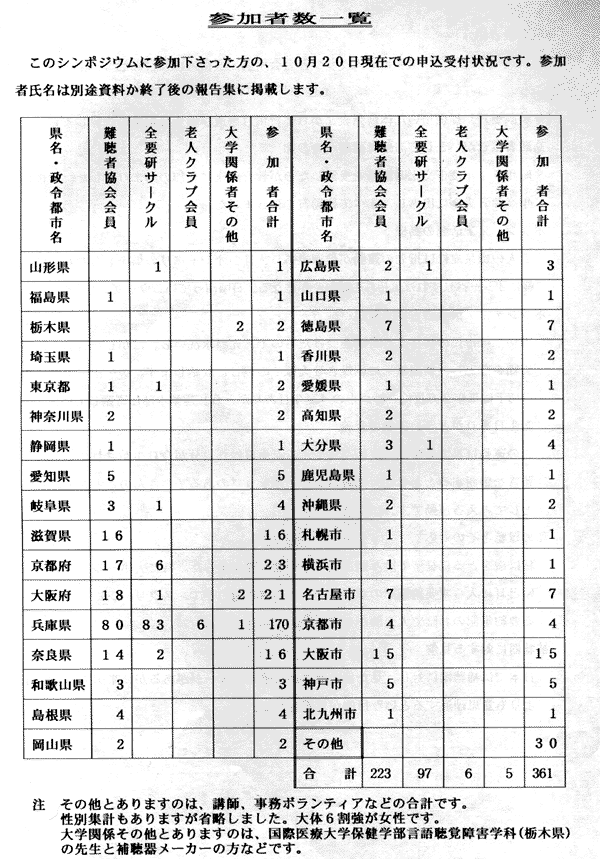 参加者数一覧
このシンポジウムに参加下さった方の、１０月２０日現在での申込受付状況です。参加
者氏名は別途資料か終了後の報告集に掲載します。
県名・政令都市名 難聴者協会会員 全要研サークル 老人クラブ会員 大学関係者その他 参加者合計 県名・政令都市名 難聴者協会会員 全要研サークル 老人クラブ会員 大学関係者その他 参加者合計
山形県 1 1 広島県 2 1 3
福島県 1 1 山口県 1 1
栃木県 2 2 徳島県 7 7
埼玉県 1 1 香川県 2 2
東京都 1 1 2 愛媛県 1 1
神奈川県 2 2 高知県 2 2
静岡県 1 1 大分県 3 1 4
愛知県 5 5 鹿児島県 1 1
岐阜県 3 1 4 沖縄県 2 2
滋賀県 16 16 札幌市 1 1
京都府 17 6 23 横浜市 1 1
大阪府 18 1 2 21 名古屋市 7 7
兵庫県 80 83 6 1 170 京都市 4 4
奈良県 14 2 16 大阪市 15 15
和歌山県 3 3 神戸市 5 5
島根県 4 4 北九州市 1 1
岡山県 2 2 その他 30
合計 223 97 6 5 361
注 その他とありますのは、講師、事務ボランティアなどの合計です。
性別集計もありますが省略しました。大体６割強が女性です。
大学関係その他とありますのは、国際医療大学保健学部言語聴覚障害学科(栃木県)
の先生と補聴器メーカーの方などです。